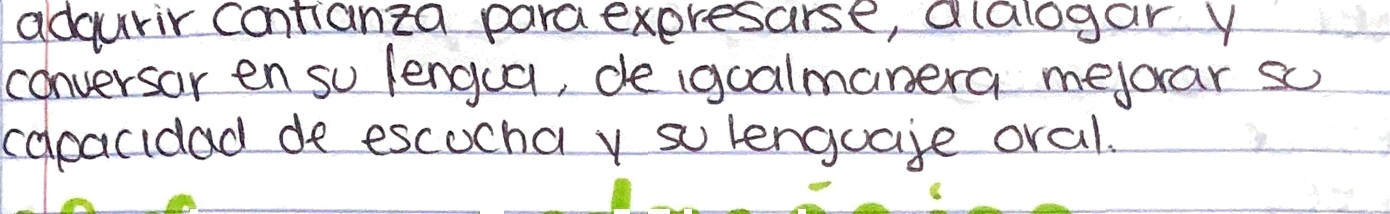 adqurir confianza para expresarse, dialogar y
conversar en su lengua, de igualmanera mejorar su
capacidad de escucha y su lenguaje oral.